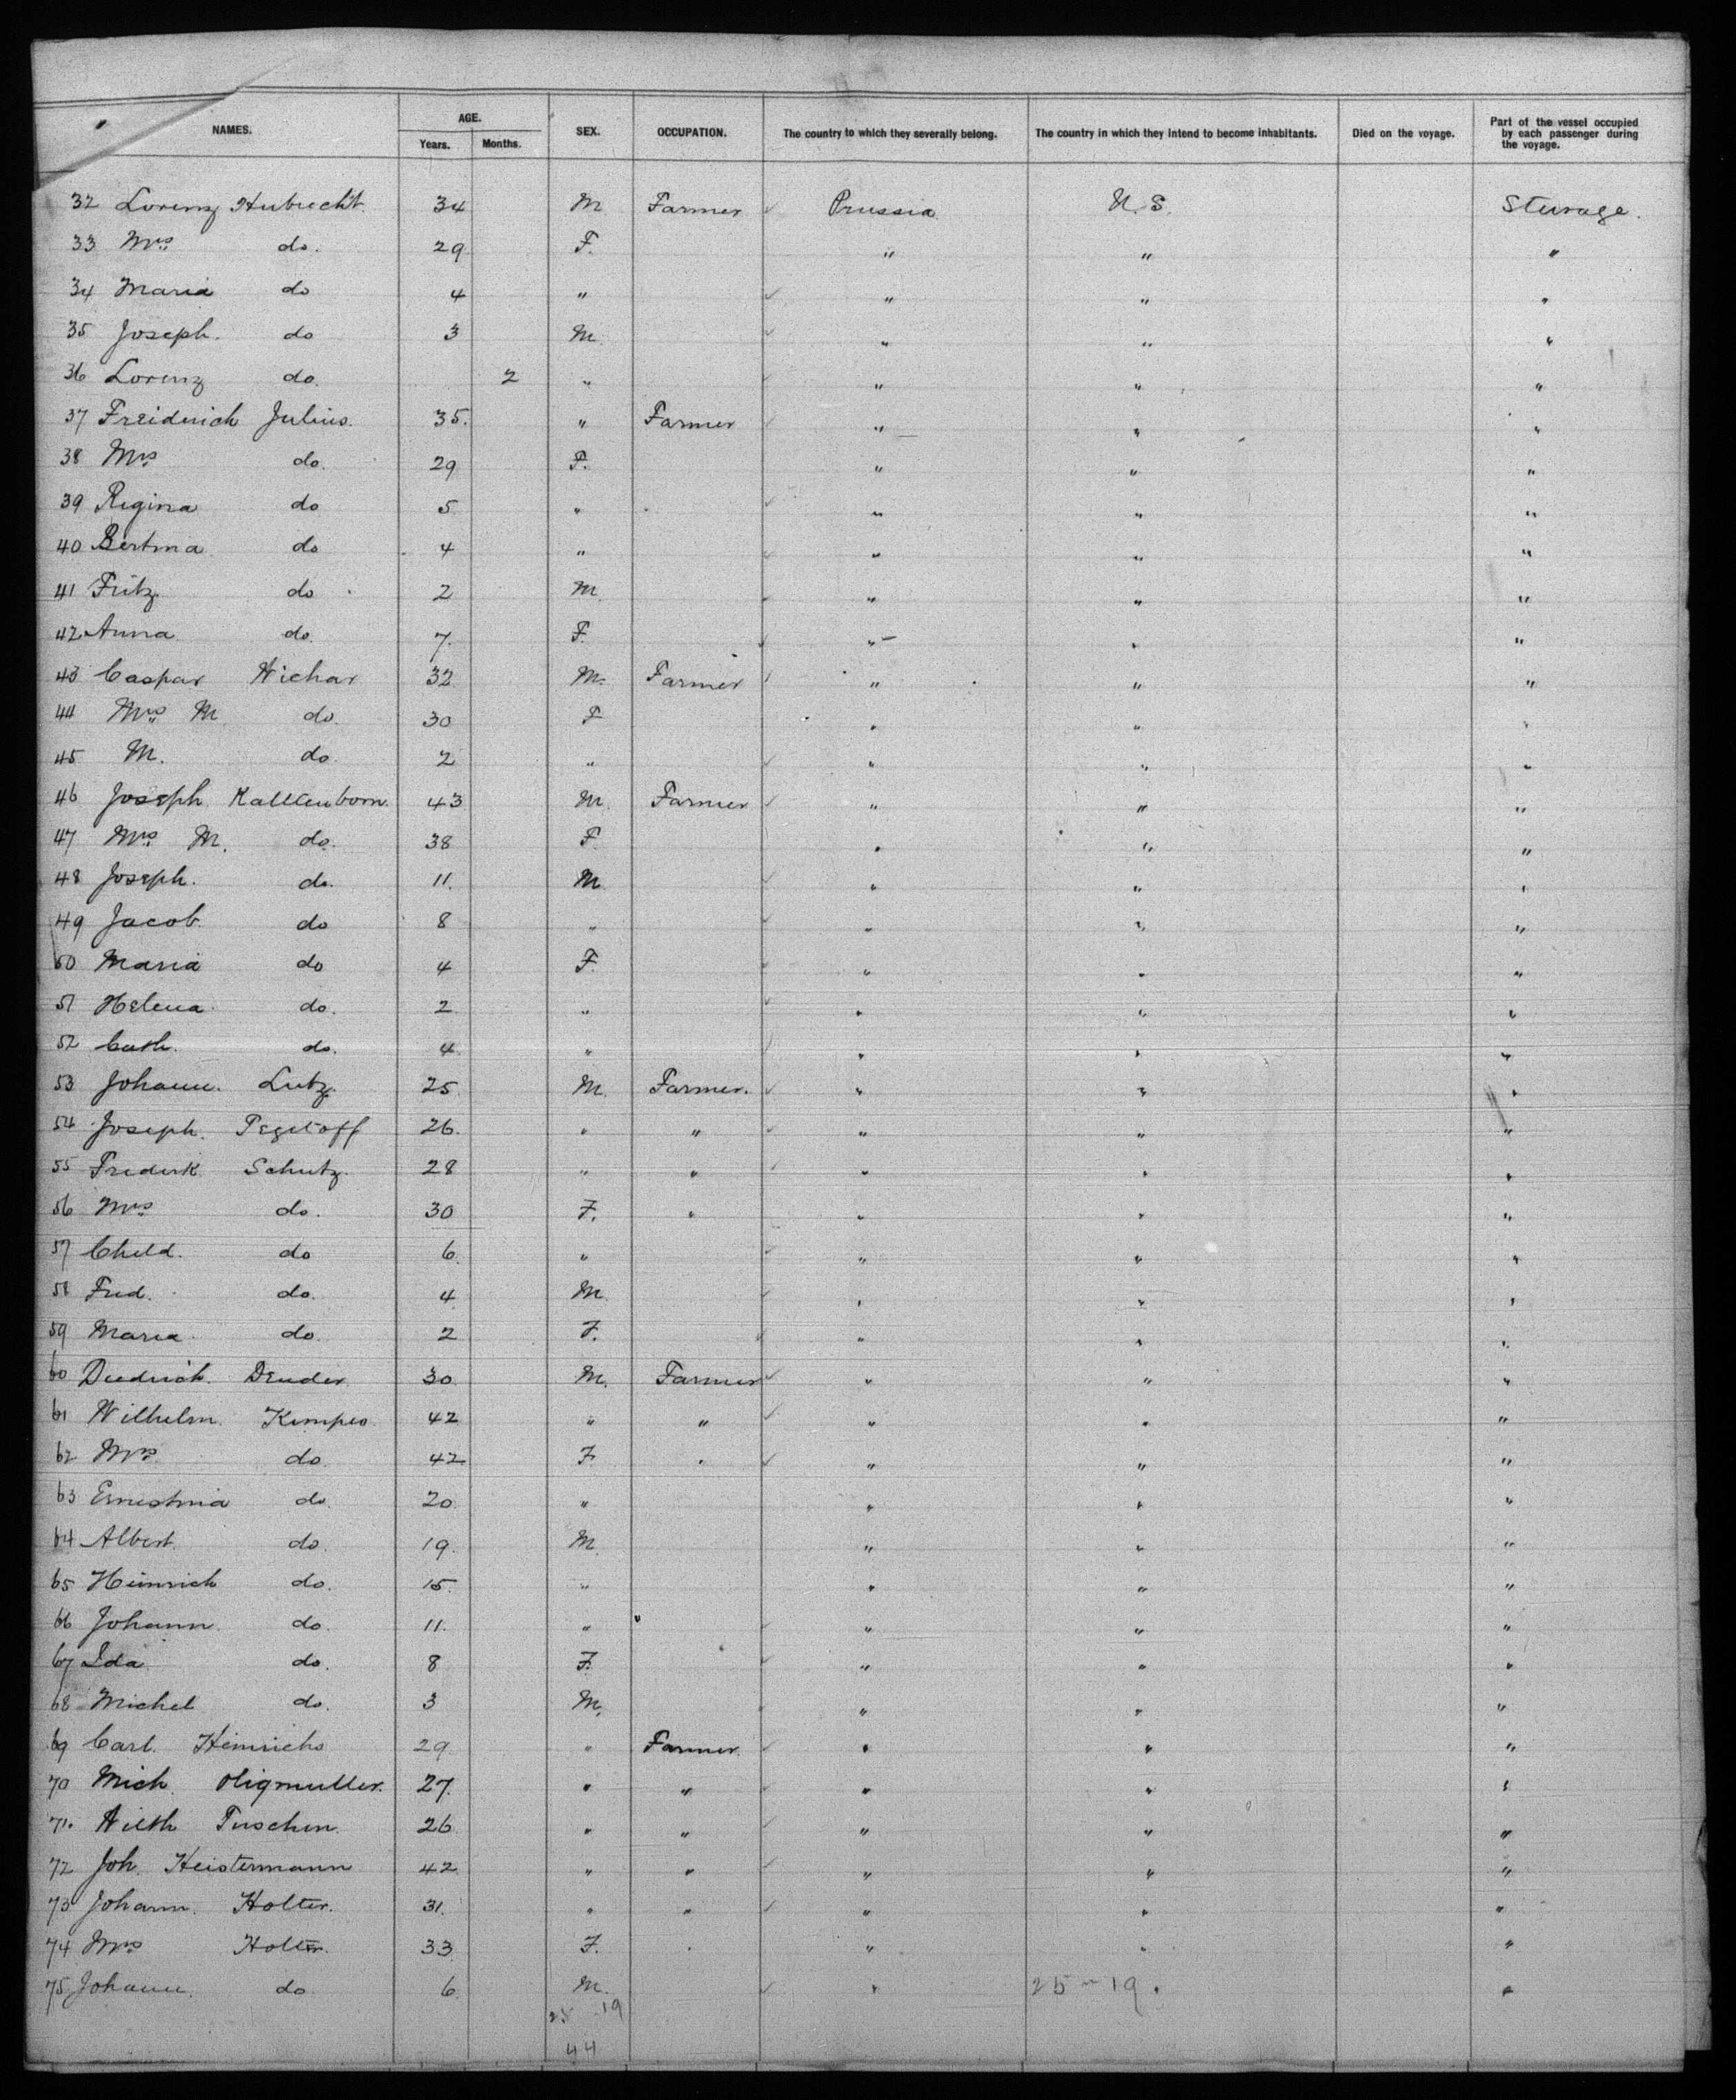 NAMES. AGE. Years. Months. SEX. OCCUPATION. The country to which they severally belong. The country in which they intend to become inhabitants. Died on the voyage. Part of the vessel occupied by each passenger during the voyage.
32 Lorenz Hubrecht. 34 M Farmer Prussia U.S. Steerage.
33 Mrs do. 29 F. " " "
34 Maria do 4 " " " "
35 Joseph. do 3 M. " " "
36 Lorenz do. 2 " " " "
37 Freiderich Julius. 35. " Farmer " " "
38 Mrs do. 29 F. " " "
39 Regina do 5 " " " "
40 Bertma do 4 " " " "
41 Fritz do 2 M. " " "
42 Anna do. 7. F. " " "
43 Caspar Wichar 32 M. Farmer " " "
44 Mrs M do. 30 F " " "
45 M. do. 2 " " " "
46 Joseph Kalttenborn. 43 M. Farmer " " "
47 Mrs M. do. 38 F. " " "
48 Joseph. do. 11. M " " "
49 Jacob do 8 " " " "
50 Maria do 4 F. " " "
51 Helena do. 2 " " " "
52 Cath. do. 4 " " " "
53 Johann. Lutz. 25 M. Farmer. " " "
54 Joseph. 26. " " " " "
55 Frederk Schutz. 28 " " " " "
56 Mrs do. 30 F. " " " "
57 Child. do 6. " " " "
58 Fred. do. 4 M. " " "
59 Maria do. 2 F. " " "
60 Diedrich. Deuder 30 M. Farmer " " "
61 Wilhelm. Kempes 42 " " " " "
62 Mrs do. 42 F " " " "
63 Ernestina do. 20 " " " "
64 Albert. do. 19. M. " " "
65 Heinrich do. 15. " " " "
66 Johann. do. 11. " " " " "
67 Ida do. 8 F. " " "
68 Michel do. 3 M. " " "
69 Carl. Heinrichs 29 " Farmer " " "
70 Mich. Oligmuller. 27. " " " " "
71. Wilth Tuschen. 26 " " " " "
72 Joh. Heistermann 42 " " " " "
73 Johann. Holter. 31. " " " " "
74 Mrs Holter. 33 F. " " " "
75 Johann. do 6 M. " 25 " 19. "
25 19
44